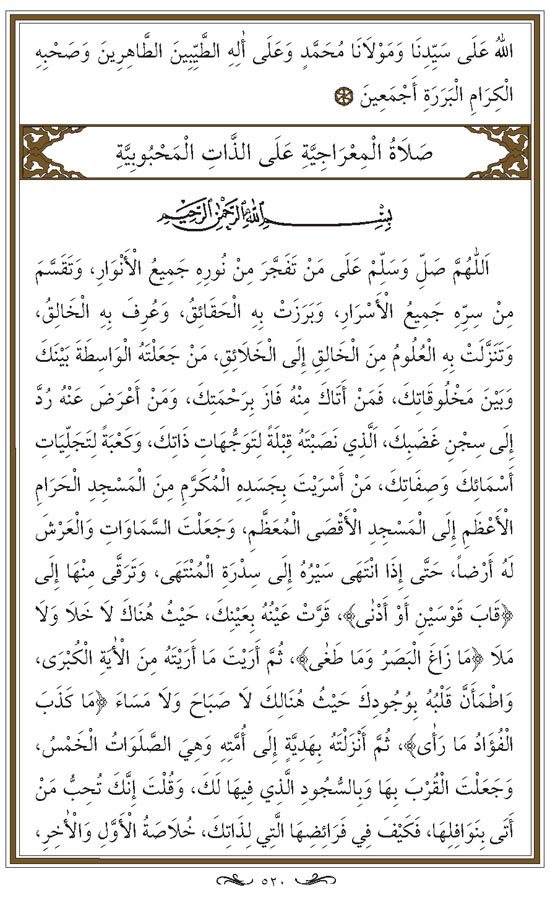 اللهُ عَلَى سَيِّدِنَا وَمَوْلَانَا مُحَمَّدٍ وَعَلَى أٰلِهِ الطَّيِّبِينَ الطَّاهِرِينَ وَصَحْبِهِ
الْكِرَامِ الْبَرَرَةِ أَجْمَعِينَ
صَلَاةُ الْمِعْرَاجِيَّةِ عَلَى الذَّاتِ الْمَحْبُوبِيَّةِ
بِسْمِ اللهِ الرَّحْمٰنِ الرَّحِيمِ
اَللّٰهُمَّ صَلِّ وَسَلِّمْ عَلَى مَنْ تَفَجَّرَ مِنْ نُورِهِ جَمِيعُ الْأَنْوَارِ، وَتَقَسَّمَ
مِنْ سِرِّهِ جَمِيعُ الْأَسْرَارِ، وَبَرَزَتْ بِهِ الْحَقَائِقُ، وَعُرِفَ بِهِ الْخَالِقُ،
وَتَنَزَّلَتْ بِهِ الْعُلُومُ مِنَ الْخَالِقِ إِلَى الْخَلَائِقِ، مَنْ جَعَلْتَهُ الْوَاسِطَةَ بَيْنَكَ
وَبَيْنَ مَخْلُوقَاتِكَ، فَمَنْ أَتَاكَ مِنْهُ فَازَ بِرَحْمَتِكَ، وَمَنْ أَعْرَضَ عَنْهُ رُدَّ
إِلَى سِجْنِ غَضَبِكَ، اَلَّذِي نَصَبْتَهُ قِبْلَةً لِتَوَجُّهَاتِ ذَاتِكَ، وَكَعْبَةً لِتَجَلِّيَاتِ
أَسْمَائِكَ وَصِفَاتِكَ، مَنْ أَسْرَيْتَ بِجَسَدِهِ الْمُكَرَّمِ مِنَ الْمَسْجِدِ الْحَرَامِ
الْأَعْظَمِ إِلَى الْمَسْجِدِ الْأَقْصَى الْمُعَظَّمِ، وَجَعَلْتَ السَّمَاوَاتِ وَالْعَرْشَ
لَهُ أَرْضاً، حَتَّى إِذَا انْتَهَى سَيْرُهُ إِلَى سِدْرَةِ الْمُنْتَهَى، وَتَرَقَّى مِنْهَا إِلَى
﴿قَابَ قَوْسَيْنِ أَوْ أَدْنٰى﴾، قَرَّتْ عَيْنُهُ بِعَيْنِكَ، حَيْثُ هُنَاكَ لَا خَلَا وَلَا
مَلَا ﴿مَا زَاغَ الْبَصَرُ وَمَا طَغٰى﴾، ثُمَّ أَرَيْتَ مَا أَرَيْتَهُ مِنَ الْأٰيَةِ الْكُبْرَى،
وَاطْمَأَنَّ قَلْبُهُ بِوُجُودِكَ حَيْثُ هُنَالِكَ لَا صَبَاحَ وَلَا مَسَاءَ ﴿مَا كَذَبَ
الْفُؤَادُ مَا رَأٰى﴾، ثُمَّ أَنْزَلْتَهُ بِهَدِيَّةٍ إِلَى أُمَّتِهِ وَهِيَ الصَّلَوَاتُ الْخَمْسُ،
وَجَعَلْتَ الْقُرْبَ بِهَا وَبِالسُّجُودِ الَّذِي فِيهَا لَكَ، وَقُلْتَ إِنَّكَ تُحِبُّ مَنْ
أَتَى بِنَوَافِلِهَا، فَكَيْفَ فِي فَرَائِضِهَا الَّتِي لِذَاتِكَ، خُلَاصَةُ الْأَوَّلِ وَالْأٰخِرِ،
٥٢٠